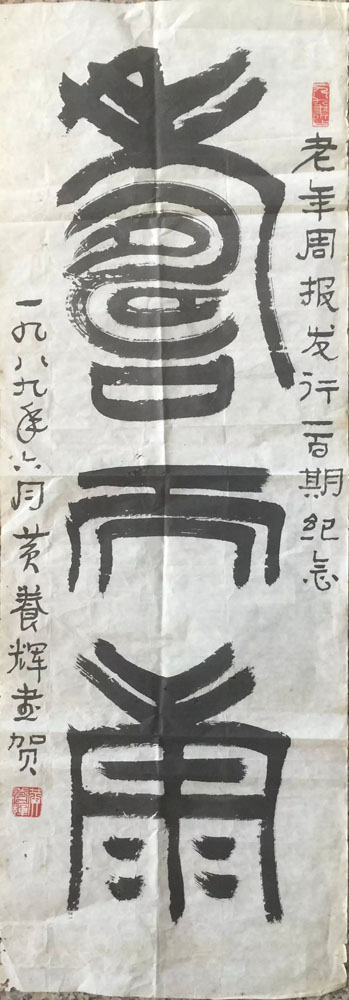 老年周报发行一百期纪念
壽而康
一九八九年六月黄養辉书贺